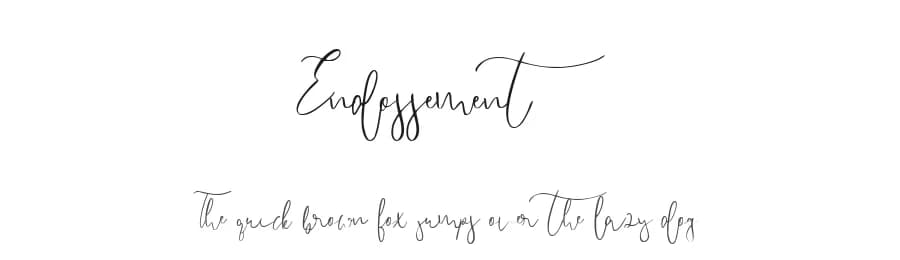 Endossement
The quick brown fox jumps over the lazy dog